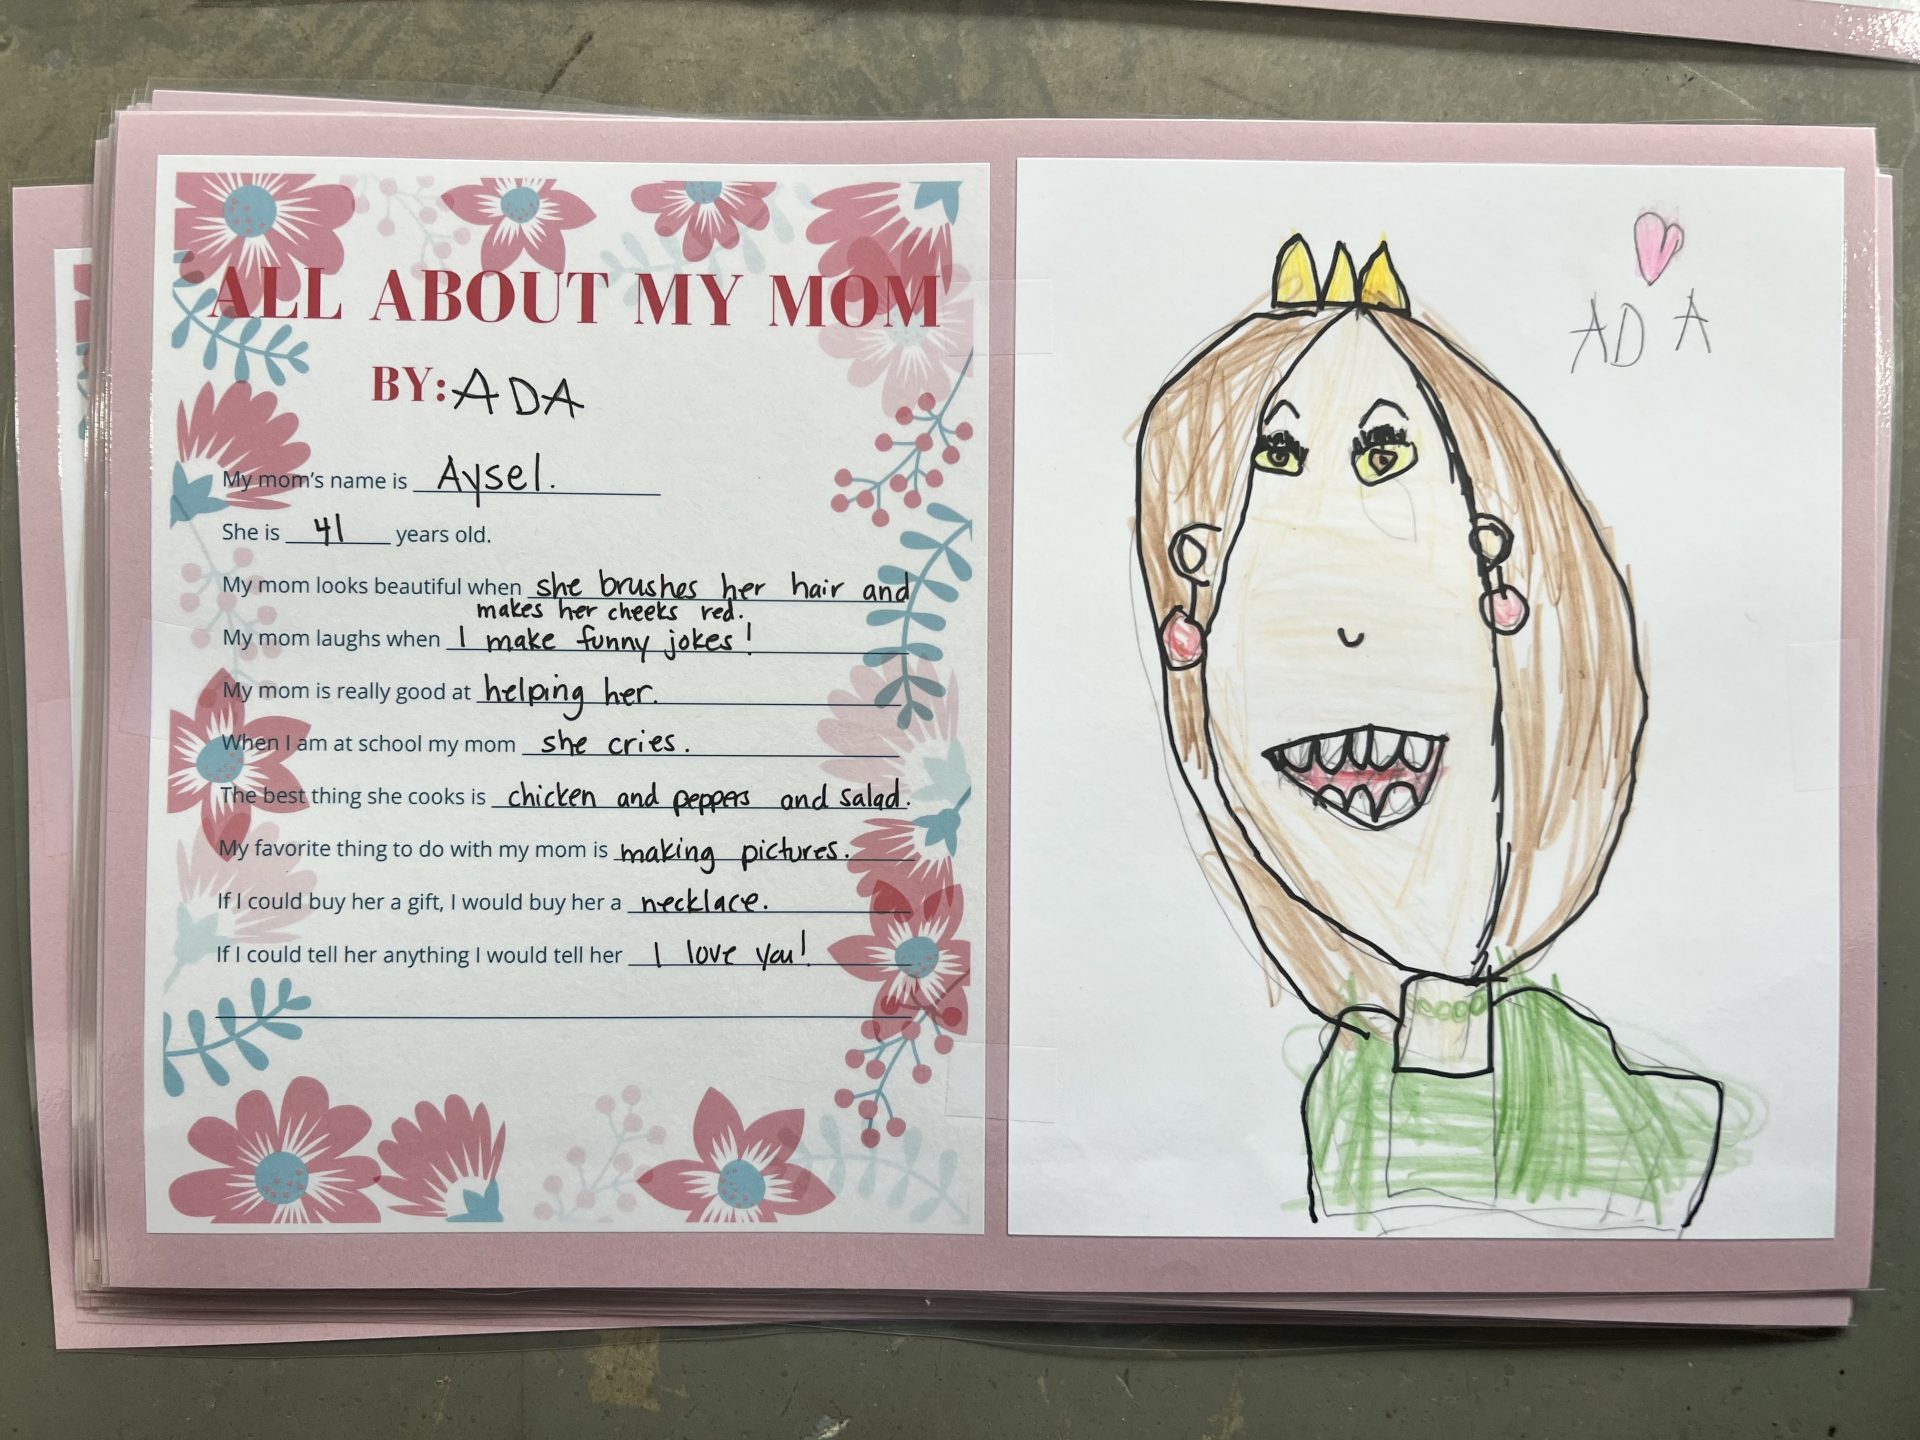 ALL ABOUT MY MOM
BY: ADA
My mom's name is Aysel.
She is 41 years old.
My mom looks beautiful when she brushes her hair and
makes her cheeks red.
My mom laughs when I make funny jokes!
My mom is really good at helping her.
When I am at school my mom she cries.
The best thing she cooks is chicken and peppers and salad.
My favorite thing to do with my mom is making pictures.
If I could buy her a gift, I would buy her a necklace.
If I could tell her anything I would tell her I love you!
ADA